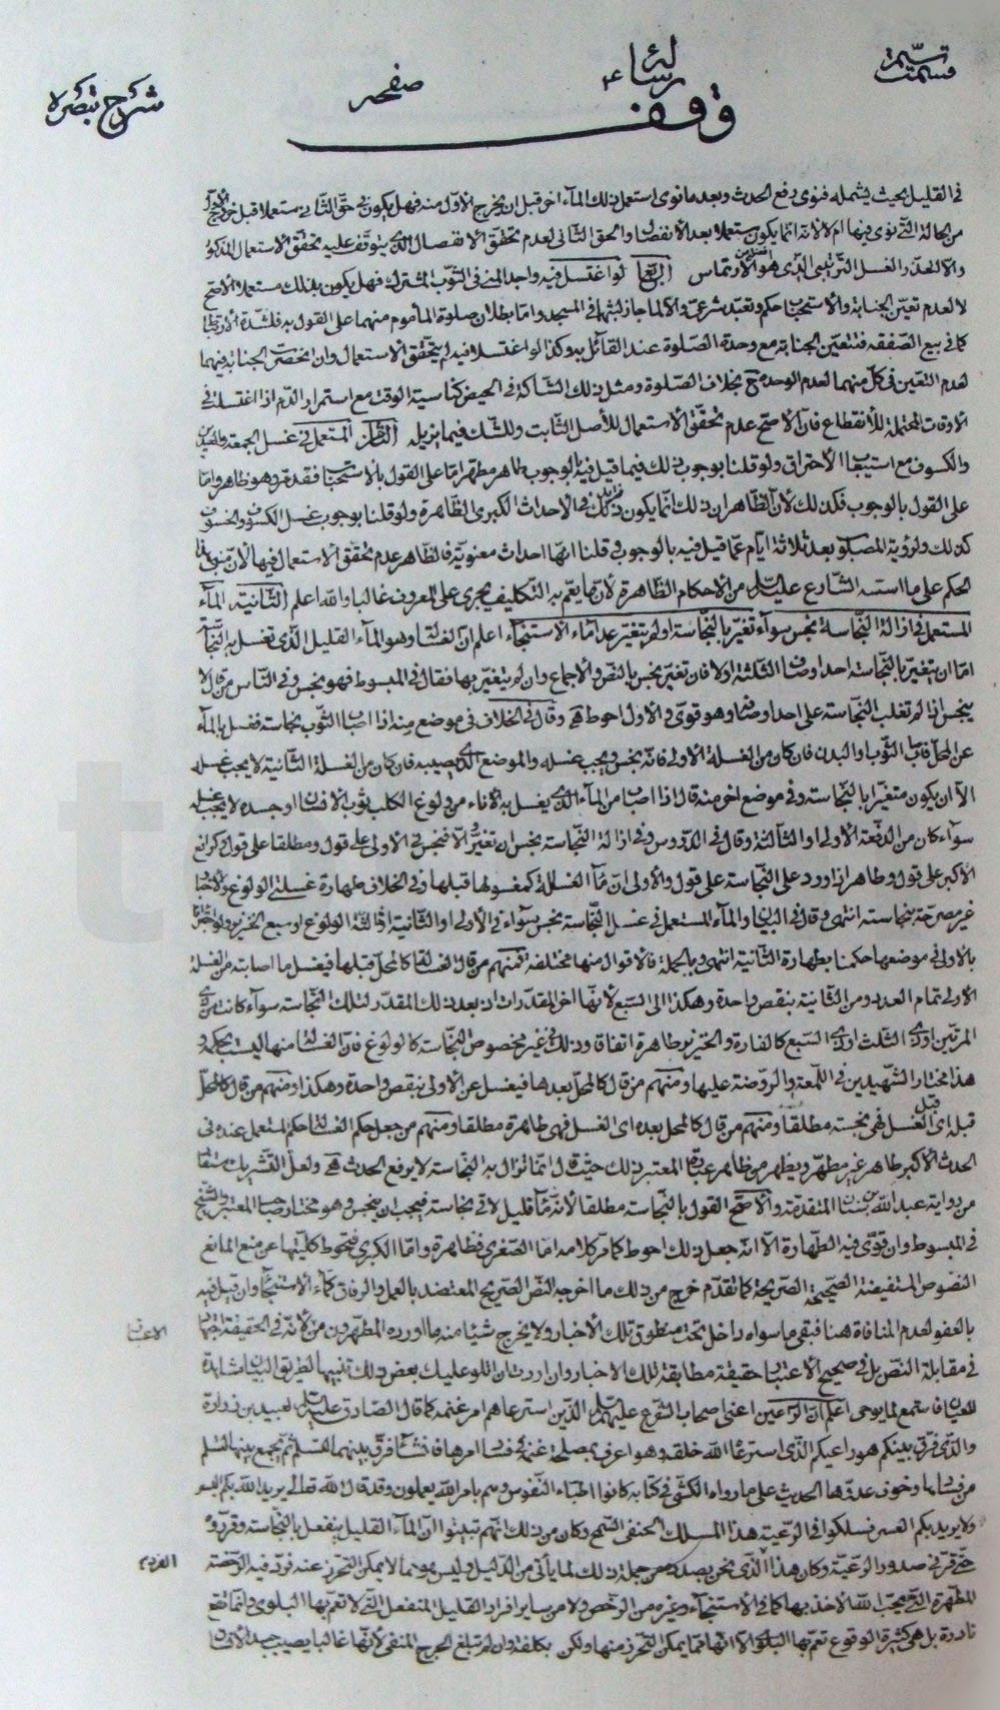 شرح تبصره
صفحه
رسالة
وقف
في القليل بحيث يشمله فنوى رفع الحدث وبعد ما نوى استعمل ذلك المآء اخر قبل ان يخرج الاوّل منه فهل يكون في حقّ الثاني مستعملا قبل خروج الاوّل
من الحالة التي نوى فيها ام لا لانّه انّما يكون مستعملا بعد الانفصال والحق الثاني لعدم تحقّق الانفصال الذي يتوقّف عليه تحقّق الاستعمال المذكور
والا لاتّحد والغسل الترتيبي الذي هو الارتماس لو اغتسل فيه واجد المني في الثوب المشترك فهل يكون بذلك مستعملا الاصح
لا لعدم تعيّن الجنابة والاستحباب حكم وتعبّد شرعي والا لما جاز لبثهما في المسجد وامّا بطلان صلوة الماموم منهما على القول به فلشدّة
كما في بيع الصّفقه فتتعيّن الجنابة مع وحدة الصّلوة عند القائل به وكذا لو اغتسلا فيه لم يتحقّق الاستعمال وان انحصرت الجنابة فيهما
لعدم التعيّن في كلّ منهما لعدم الوحدة بخلاف الصّلوة ومثل ذلك الشّاكة في الحيض كناسية الوقت مع استمرار الدّم اذا اغتسلت في
الاوقات المحتملة للانقطاع فانّ الاصحّ عدم تحقّق الاستعمال للاصل الثّابت وللشّك فيما يزيله المستعمل في غسل الجمعة والعيدين
والكسوف مع استيعاب الاحتراق ولو قلنا بوجوب ذلك فيما قيل فيه بالوجوب طاهر مطهّر امّا على القول بالاستحباب فقد مرّ وهو ظاهر وامّا
على القول بالوجوب فكذلك لانّ الظّاهر ان ذلك انّما يكون كذلك في الاحداث الكبرى الظّاهرة ولو قلنا بوجوب غسل الكسوف والخسوف
كذلك ولرؤية المصلوب بعد ثلاثة ايّام عمّا قيل فيه بالوجوب وقلنا انّها احداث معنويّة فالظّاهر عدم تحقّق الاستعمال فيها لانّ
الحكم على ما اسّسه الشّارع عليه السلام من الاحكام الظّاهرة لان ما يعمّ به التّكاليف يجرى على المعروف غالبا واللّه اعلم الثّانية المآء
المستعمل في ازالة النّجاسة نجس سوآء تغيّر بالنّجاسة او لم يتغيّر عدا مآء الاستنجآء اعلم انّ الغسالة وهو المآء القليل الّذي تغسل به النّجاسة
امّا ان يتغيّر بالنّجاسة احد اوصاف الثّلثة اولا فان تغيّر نجس بالنّص والاجماع وان لم يتغيّر بها فقال في المبسوط فهو نجس وفي النّاس من قال لا
ينجس اذا لم تغلب النّجاسة على احد اوصافه وهو قوىّ والاول احوط وقال في الخلاف في موضع منه اذا اصاب الثّوب نجاسة فغسل بالمآء
عن المحلّ فاصاب الثّوب او البدن فان كان من الغسلة الاولى فانّه نجس ويجب غسله والموضع الذي يصيبه فان كان من الغسلة الثّانية لا يجب غسله
الّا ان يكون متغيّرا بالنّجاسة وفي موضع اخر منه قال اذا اصاب من المآء الذي يغسل به الاناء من ولوغ الكلب ثوب الانسان او جسده لا يجب غسله
سوآء كان من الدفعة الاولى او الثّانية او الثّالثة وقال في الدّروس وفي ازالة النّجاسة نجس ان تغيّر والّا فنجس في الاولى على قول ومطلقا على قول وكرافع
الاكبر على قول وطاهر اذا ورد على النّجاسة على قول والاولى انّ مآء الغسلة كمغسولها قبلها وفي الخلاف طهارة غسلتي الولوغ والاخبار
غير مصرّحة بنجاسته انتهى وقال في البيان والمآء المستعمل في غسل النّجاسة نجس سوآء في الاولى او الثّانية او ثالثة الولوغ او سبع الخنزير
بالاولى في موضعها حكمنا بطهارة الثّانية انتهى وبالجملة فالاقوال منها مختلفة فمنهم من قال الغسالة كالمحلّ قبلها فيغسل ما اصابته من الغسلة
الاولى تمام العدد ومن الثّانية بنقص واحدة وهكذا الى السّبع لانّها اخر المقدّرات ان بعد ذلك المقدّر لتلك النّجاسة سوآء كانت من
المرّتين او ذي الثّلث او ذي السّبع كالفارة والخنزير طاهرة اتّفاقا وذلك في غير مخصوص النّجاسة كالولوغ فانّ الغسالة منها ليست بحكمه و
هذا مختار الشّهيدين في اللّمعة والرّوضة عليها ومنهم من قال كالمحلّ بعدها فيغسل عن الاولى بنقص واحدة وهكذا ومنهم من قال كالمحلّ
قبله اي قبل الغسل فهي نجسة مطلقا ومنهم من قال كالمحل بعده اي الغسل فهي طاهرة مطلقا ومنهم من جعل حكم الغسالة حكم المستعمل عنده في
الحدث الاكبر طاهر غير مطهّر ويظهر من ظاهر عبارة المعتبر ذلك حيث قال انّ ما تزال به النّجاسة لا يرفع الحدث ولعلّ التّشريك مستفاد
من رواية عبد اللّه بن سنان المتقدمة والاصحّ القول بالنّجاسة مطلقا لانّه مآء قليل لاقى نجاسة فيجب ان ينجس وهو مختار صاحب المعتبر والشّيخ
في المبسوط وان قوّى فيه الطّهارة الّا انّه جعل ذلك احوط كما مرّ كلامه امّا الصّغرى فظاهرة وامّا الكبرى فتحوط كليّتها عن منع المانع
النّصوص المستفيضة الصّحيحة الصّريحة كما تقدّم خرج من ذلك ما اخرجه النّص الصّريح المعتضد بالعمل والوفاق كمآء الاستنجآء وان قيل فيه
بالعفو لعدم المنافاة هنا فبقى ما سواه داخلا تحت منطوق تلك الاخبار ولا يخرج شيئا منه ما اورده المطهّرون من لانّه في الحقيقة اجتهاد
في مقابلة النّص بل في صحيح الاعتبار حقيقة مطابقة لتلك الاخبار وان اردت ان اتلو عليك بعض ذلك تنبيها لطريق البيان اشارة
للعيان فاستمع لما يوحى اعلم انّ الرّاعين اعنى اصحاب الشّرع عليهم السلام الّذين استرعاهم امر غنمه كما قال الصّادق عليه السلام لعبيد بن زرارة
والّذي فرّق بينكم هو راعيكم الّذي استرعاه اللّه خلقه وهو اعرف بمصلحة غنمه في فساد امرها فان شآء فرّق بينهما لتسلم ثم يجمع بينها لتسلم
من فسادها وخوف عدوّها الحديث على ما رواه الكشّي في كتابه كانوا اطبّاء النّفوس وهم بامر اللّه يعملون وقد قال اللّه تعالى يريد اللّه بكم اليسر
ولا يريد بكم العسر فسلكوا في الرّعيّة هذا المسلك الحنفي السّمح وكان من ذلك انّهم تبيّنوا انّ المآء القليل ينفعل بالنّجاسة وقرّروه
حتّى قرّ في صدور الرّعيّة وكان هذا الّذي نحن بصدده من جملة ذلك لما ياتى من الدّليل وليس هو ممّا لا يمكن التحرّز عنه فورد فيه الرّخصة
المطهّرة الّتي يحبّ اللّه الاخذ بها كما في الاستنجآء وغيره من الرّخص ولا من ساير افراد القليل المنفعل الّتي لا تعمّ بها البلوى وانّما تقع
نادرة بل هي كثيرة الوقوع تعمّ بها البلوى الّا انّها ممّا يمكن التّحرّز منها ولكن بكلفة وان لم تبلغ الحرج المنفي لانّها غالبا يصيب جسد الانسان